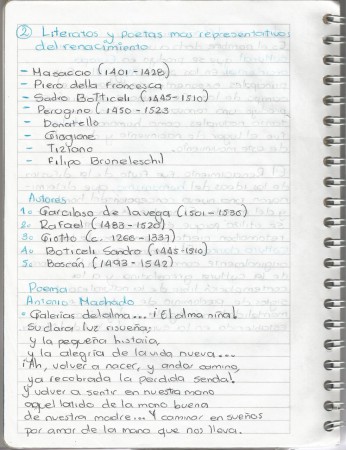 ② Literatos y poetas mas representativos
del renacimiento
- Masaccio (1401-1428)
- Piero della Francesca
- Sadro Botticeli (1445-1510)
- Perugino (1450-1523
- Donatello
- Giogione
- Tiziano
- Filipo Bruneleschil
Autores
1. Garcilaso de la vega (1501-1536)
2. Rafael (1483-1520)
3. Giotto (c. 1266-1337)
4. Boticeli Sandro (1445-1510)
5. Boscán (1493-1542)
Poema
Antonio Machado
Galerías del alma... ¡El alma niña!
Su clara luz risueña;
y la pequeña historia,
y la alegria de la vida nueva...
¡Ah, volver a nacer, y andar camino,
ya recobrada la perdida senda!
y volver a sentir en nuestra mano
aquel latido de la mano buena
de nuestra madre... Y caminar en sueños
por amor de la mano que nos lleva.